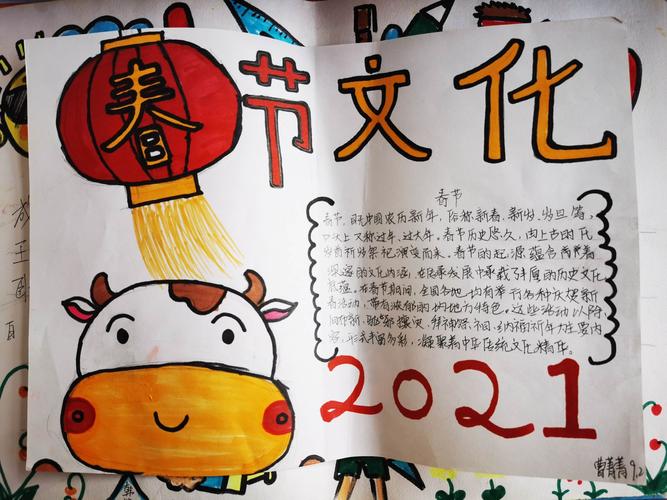 春节文化
春节
春节,即中国农历新年,俗称新春、新岁、岁旦等,
口头上又称过年、过大年。春节历史悠久,由上古时代
岁首祈岁祭祀演变而来。春节的起源蕴含着
深邃的文化内涵,在传承发展中承载了丰厚的历史文化
底蕴。在春节期间,全国各地均有举行各种庆贺新
春活动,带有浓郁的各地方特色。这些活动以除
旧布新、驱邪攘灾、拜神祭祖、纳福祈年为主要内
容,形式丰富多彩,凝聚着中华传统文化精华。
2021
曹菁菁 9.2